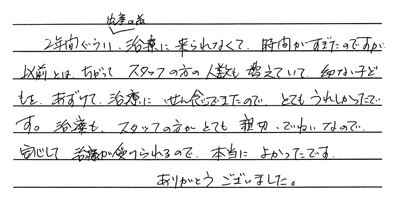 出産の為
2年間ぐらい、治療に来られなくて、時間がすぎたのですが
以前とは、ちがって スタッフの方の人数も 増えていて 幼ない子ど
もを、あずけて、治療に せん念できたので、とてもうれしかったで
す。治療も、スタッフの方がとても 親切、ていねいなので、
安心して 治療が受けられるので、本当に よかったです。
ありがとう ございました。